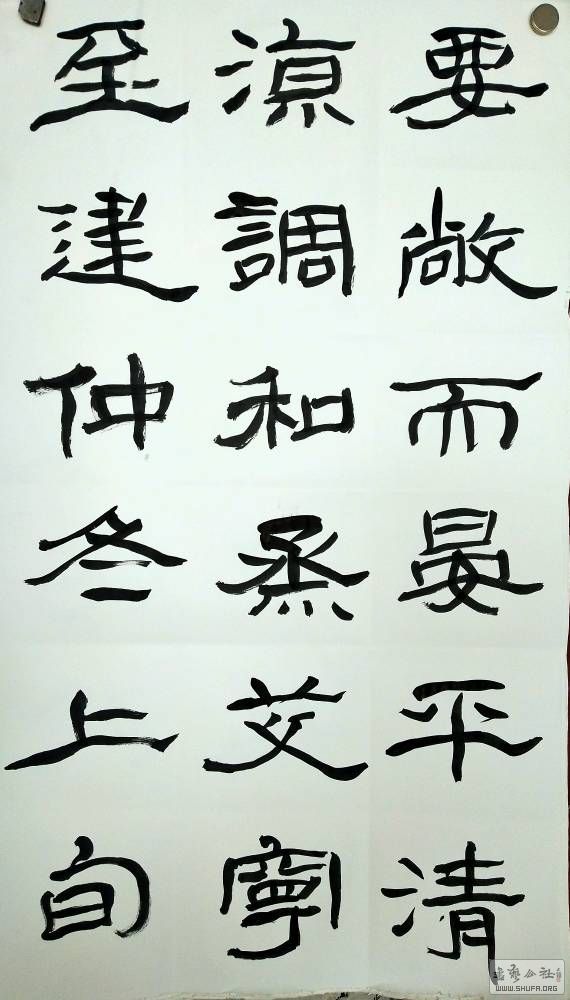 要敞而晏平清
涼調和烝艾寧
至建仲冬上旬
书艺公社
WWW.SHUFA.ORG